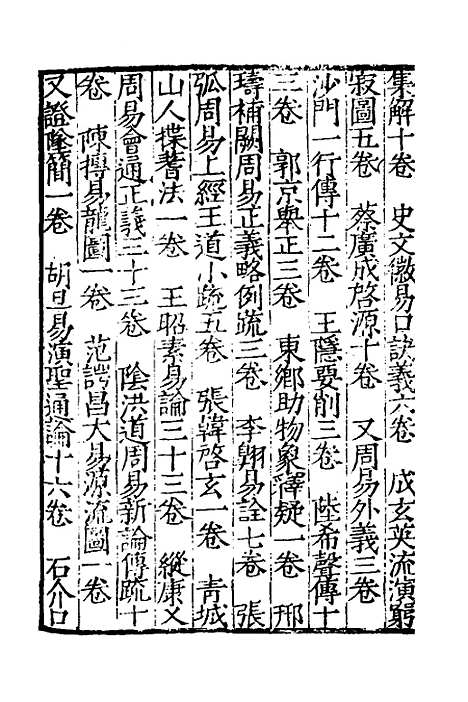 集解十卷　史文徽易口訣義六卷　成玄英流演窮
寂圖五卷　蔡廣成啓源十卷　又周易外義三卷
沙門一行傳十二卷　王隱要削三卷　陸希聲傳十
三卷　郭京舉正三卷　東鄉助物象釋疑一卷　邢
璹補闕周易正義略例疏三卷　李翺易詮七卷　張
弧周易上經王道小疏五卷　張韓啓玄一卷　青城
山人揲蓍法一卷　王昭素易論三十三卷　縱康乂
周易會通正義三十三卷　陰洪道周易新論傳疏十
卷　陳摶易龍圖一卷　范諤昌大易源流圖一卷
又證墜簡一卷　胡旦易演聖通論十六卷　石介口